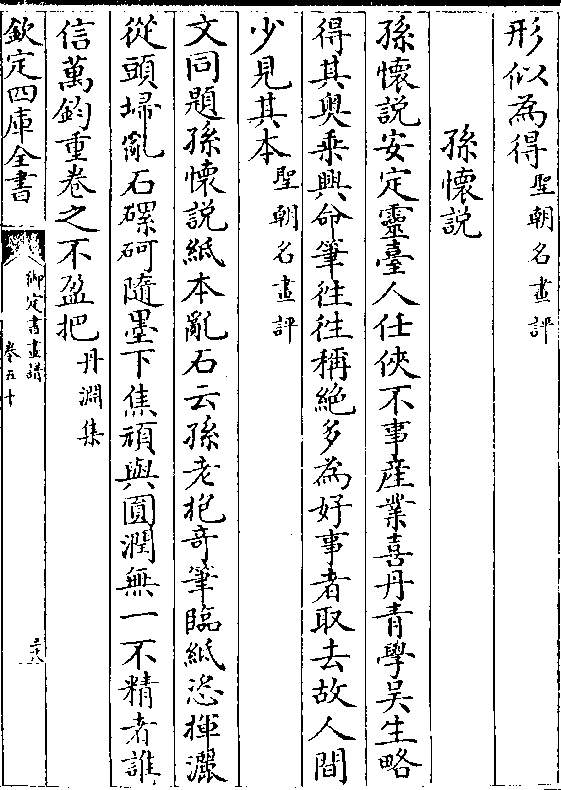 形似為得聖朝名畫評
孫懷說
孫懷說安定靈臺人任俠不事産業喜丹青學吳生略
得其奥乗興命筆徃徃稱絶多為好事者取去故人間
少見其本聖朝名畫評
文同題孫懷說紙本亂石云孫老抱奇筆臨紙恣揮灑
從頭埽亂石磥砢隨墨下焦頑與圓潤無一不精者誰
信萬鈞重卷之不盈把丹淵集
欽定四庫全書
御定書畫譜
卷五十
三十八